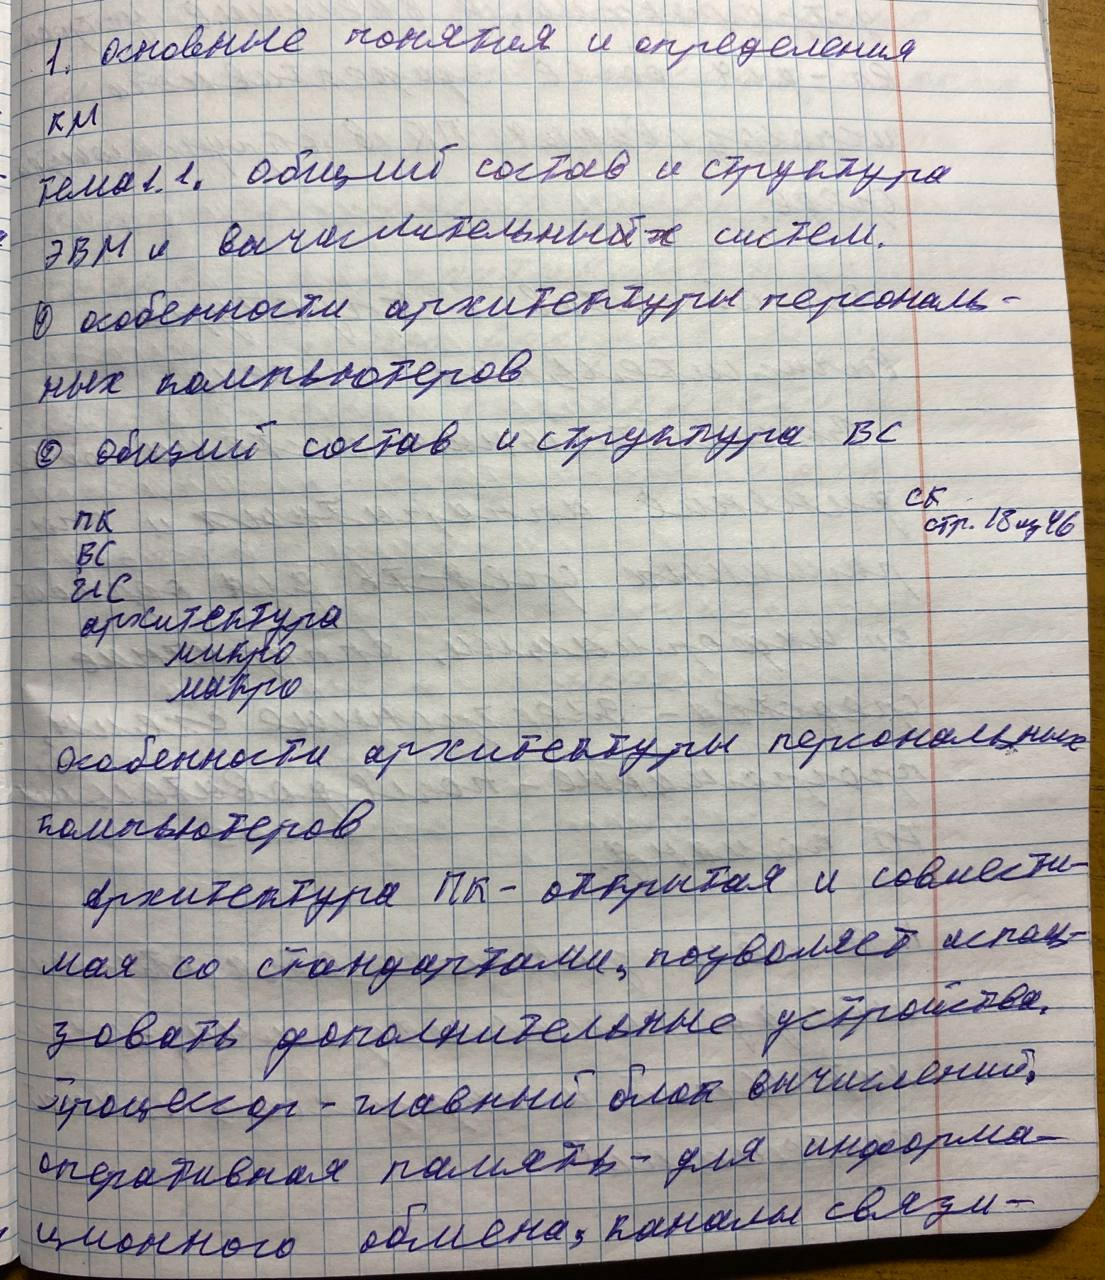 1. основные понятия и определения
КМ
тема 1.1. общий состав и структура
ЭВМ и вычислительных систем.
① особенности архитектуры персональ-
ных компьютеров
② общий состав и структура ВС
СК
стр. 18 из 46
ПК
ВС
архитектура
микро
макро
особенности архитектуры персональных
компьютеров
Архитектура ПК - открытая и совмести-
мая со стандартами, позволяет
зовать дополнительные устройства.
Процессор - главный блок вычислений,
оперативная память - для информа-
ционного обмена, каналы связи -